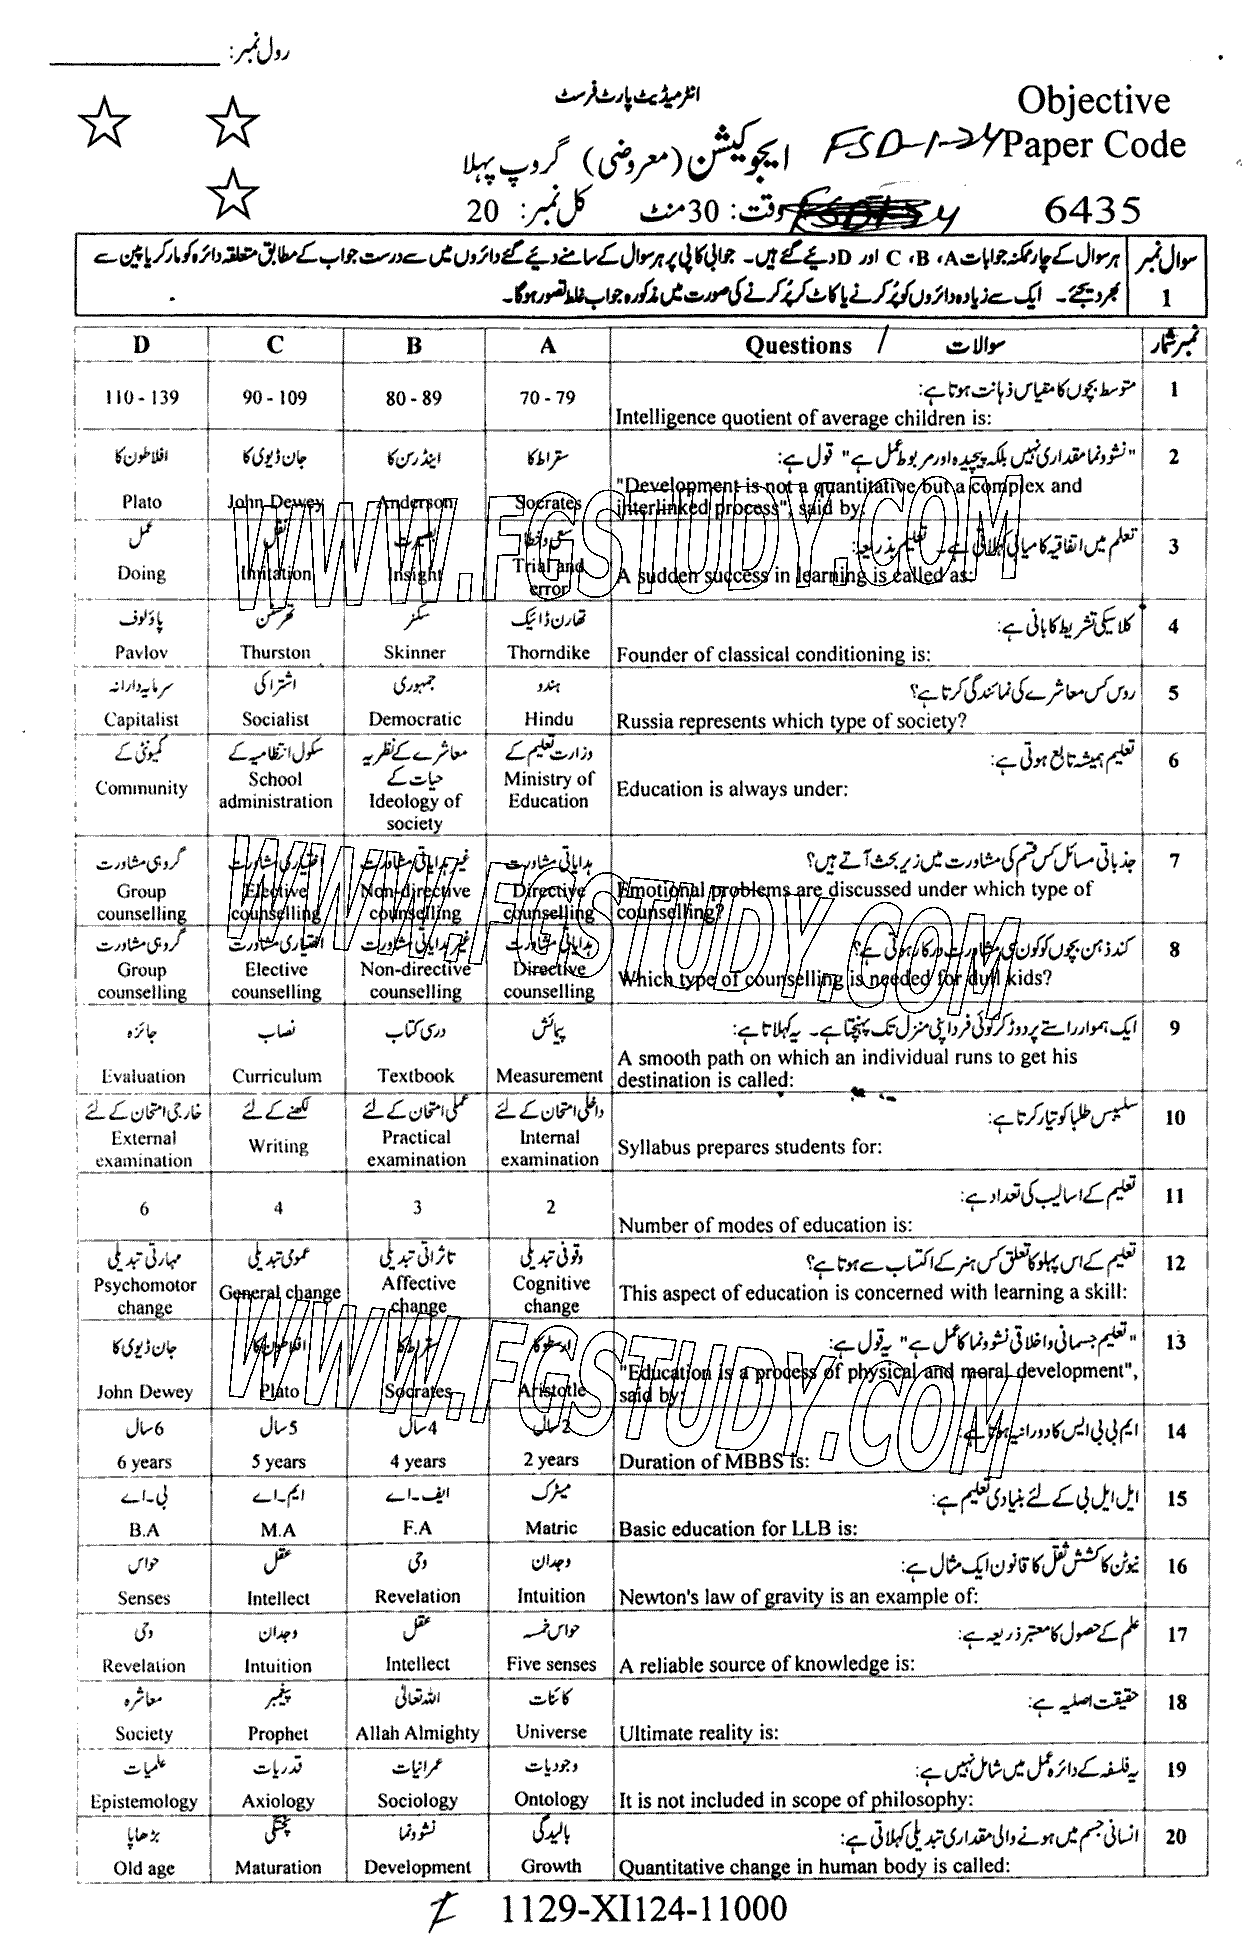 رول نمبر: ____________
انٹرمیڈیٹ پارٹ فرسٹ
Objective
Paper Code
6435
ایجوکیشن (معروضی) گروپ پہلا FSD-1-24
وقت: 30 منٹ کل نمبر: 20
سوال نمبر 1
ہر سوال کے چار ممکنہ جوابات A، B، C اور D دیئے گئے ہیں۔ جوابی کاپی پر ہر سوال کے سامنے دیئے گئے دائروں میں سے درست جواب کے مطابق متعلقہ دائرہ کو مارکر یا پین سے
بھر دیجئے۔ ایک سے زیادہ دائروں کو پُر کرنے یا کاٹ کر پُر کرنے کی صورت میں مذکورہ جواب غلط تصور ہوگا۔
D C B A Questions / سوالات نمبر شمار
1 متوسط بچوں کا مقیاس ذہانت ہوتا ہے:
Intelligence quotient of average children is:
110 - 139 90 - 109 80 - 89 70 - 79
2 "نشوونما مقداری نہیں بلکہ پیچیدہ اور مربوط عمل ہے" قول ہے:
افلاطون کا جان ڈیوی کا اینڈرسن کا سقراط کا
"Development is not a quantitative but a complex and
interlinked process", said by:
Plato John Dewey Anderson Socrates
3 تعلم میں اتفاقیہ کامیابی کہلاتی ہے۔ تعلیم بذریعہ:
عمل نقل بصیرت سعی و خطا
A sudden success in learning is called as:
Doing Imitation Insight Trial and error
4 کلاسیکی تشریط کا بانی ہے:
پاؤلوف تھرسٹن سکنر تھارن ڈائیک
Founder of classical conditioning is:
Pavlov Thurston Skinner Thorndike
5 روس کس معاشرے کی نمائندگی کرتا ہے؟
سرمایہ دارانہ اشتراکی جمہوری ہندو
Russia represents which type of society?
Capitalist Socialist Democratic Hindu
6 تعلیم ہمیشہ تابع ہوتی ہے:
کمیونٹی کے سکول انتظامیہ کے معاشرے کے نظریہ حیات کے وزارت تعلیم کے
Education is always under:
Community School administration Ideology of society Ministry of Education
7 جذباتی مسائل کس قسم کی مشاورت میں زیر بحث آتے ہیں؟
گروہی مشاورت اختیاری مشاورت غیر ہدایاتی مشاورت ہدایاتی مشاورت
Emotional problems are discussed under which type of
counselling?
Group counselling Elective counselling Non-directive counselling Directive counselling
8 کند ذہن بچوں کو کون سی مشاورت درکار ہوتی ہے؟
گروہی مشاورت اختیاری مشاورت غیر ہدایاتی مشاورت ہدایاتی مشاورت
Which type of counselling is needed for dull kids?
Group counselling Elective counselling Non-directive counselling Directive counselling
9 ایک ہموار راستے پر دوڑ کر کوئی فرد اپنی منزل تک پہنچتا ہے۔ یہ کہلاتا ہے:
جائزہ نصاب درسی کتاب پیمائش
A smooth path on which an individual runs to get his
destination is called:
Evaluation Curriculum Textbook Measurement
10 سلیبس طلبا کو تیار کرتا ہے:
خارجی امتحان کے لئے لکھنے کے لئے عملی امتحان کے لئے داخلی امتحان کے لئے
Syllabus prepares students for:
External examination Writing Practical examination Internal examination
11 تعلیم کے اسالیب کی تعداد ہے:
Number of modes of education is:
6 4 3 2
12 تعلیم کے اس پہلو کا تعلق کس ہنر کے اکتساب سے ہوتا ہے؟
مہارتی تبدیلی عمومی تبدیلی تاثراتی تبدیلی وقوفی تبدیلی
This aspect of education is concerned with learning a skill:
Psychomotor change General change Affective change Cognitive change
13 "تعلیم جسمانی و اخلاقی نشوونما کا عمل ہے" یہ قول ہے:
جان ڈیوی کا افلاطون کا سقراط کا ارسطو کا
"Education is a process of physical and moral development",
said by:
John Dewey Plato Socrates Aristotle
14 ایم بی بی ایس کا دورانیہ ہوتا ہے:
6 سال 5 سال 4 سال 2 سال
Duration of MBBS is:
6 years 5 years 4 years 2 years
15 ایل ایل بی کے لئے بنیادی تعلیم ہے:
بی۔اے ایم۔اے ایف۔اے میٹرک
Basic education for LLB is:
B.A M.A F.A Matric
16 نیوٹن کا کشش ثقل کا قانون ایک مثال ہے:
حواس عقل وحی وجدان
Newton's law of gravity is an example of:
Senses Intellect Revelation Intuition
17 علم کے حصول کا معتبر ذریعہ ہے:
وحی وجدان عقل حواس خمسہ
A reliable source of knowledge is:
Revelation Intuition Intellect Five senses
18 حقیقت اصلیہ ہے:
معاشرہ پیغمبر اللہ تعالیٰ کائنات
Ultimate reality is:
Society Prophet Allah Almighty Universe
19 یہ فلسفہ کے دائرہ عمل میں شامل نہیں ہے:
علمیات قدریات عمرانیات وجودیات
It is not included in scope of philosophy:
Epistemology Axiology Sociology Ontology
20 انسانی جسم میں ہونے والی مقداری تبدیلی کہلاتی ہے:
بڑھاپا پختگی نشوونما بالیدگی
Quantitative change in human body is called:
Old age Maturation Development Growth
1129-XI124-11000
WWW.FGSTUDY.COM
WWW.FGSTUDY.COM
WWW.FGSTUDY.COM